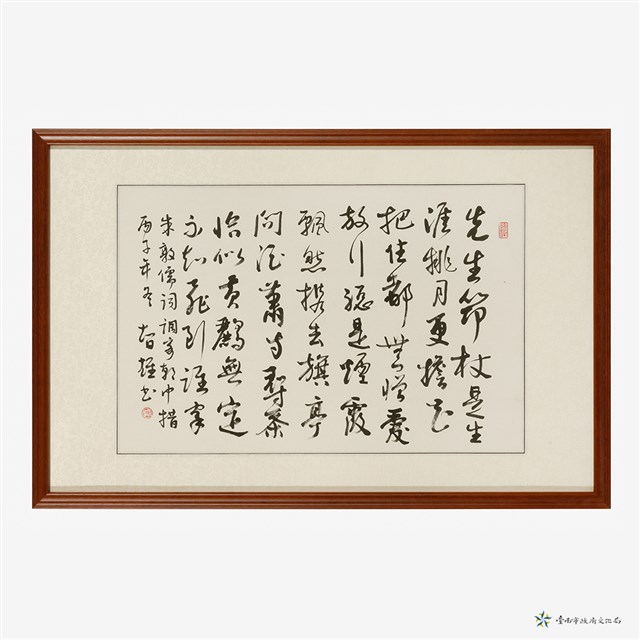 先生筇杖是生
涯挑月更擔花
把住都無憎愛
放行總是煙霞
飄然攜去旗亭
問酒蕭寺尋茶
恰似黃鸝無定
不知飛到誰家
朱敦儒詞調寄朝中措
丙子年冬 智雄書
臺南市政府文化局